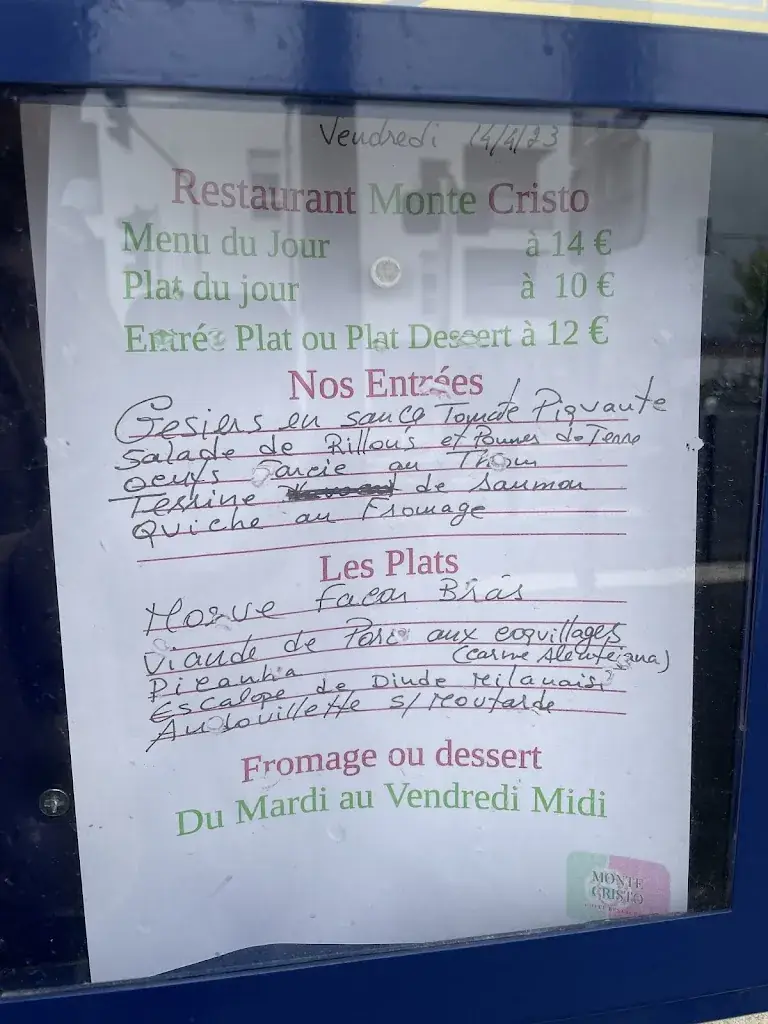 Vendredi 14/4/23
Restaurant Monte Cristo
Menu du Jour à 14 €
Plat du jour à 10 €
Entrée Plat ou Plat Dessert à 12 €
Nos Entrées
Gesiers en sauce Tomate Piquante
Salade de Rillons et Pommes de Terre
Oeufs Farcie au Thon
Terrine de Saumon
Quiche au Fromage
Les Plats
Morue Facon Brás
Viande de Porc aux coquillages
(Carne Alentejana)
Picanha
Escalope de Dinde Milanaise
Andouillette s/ Moutarde
Fromage ou dessert
Du Mardi au Vendredi Midi
MONTE
CRISTO